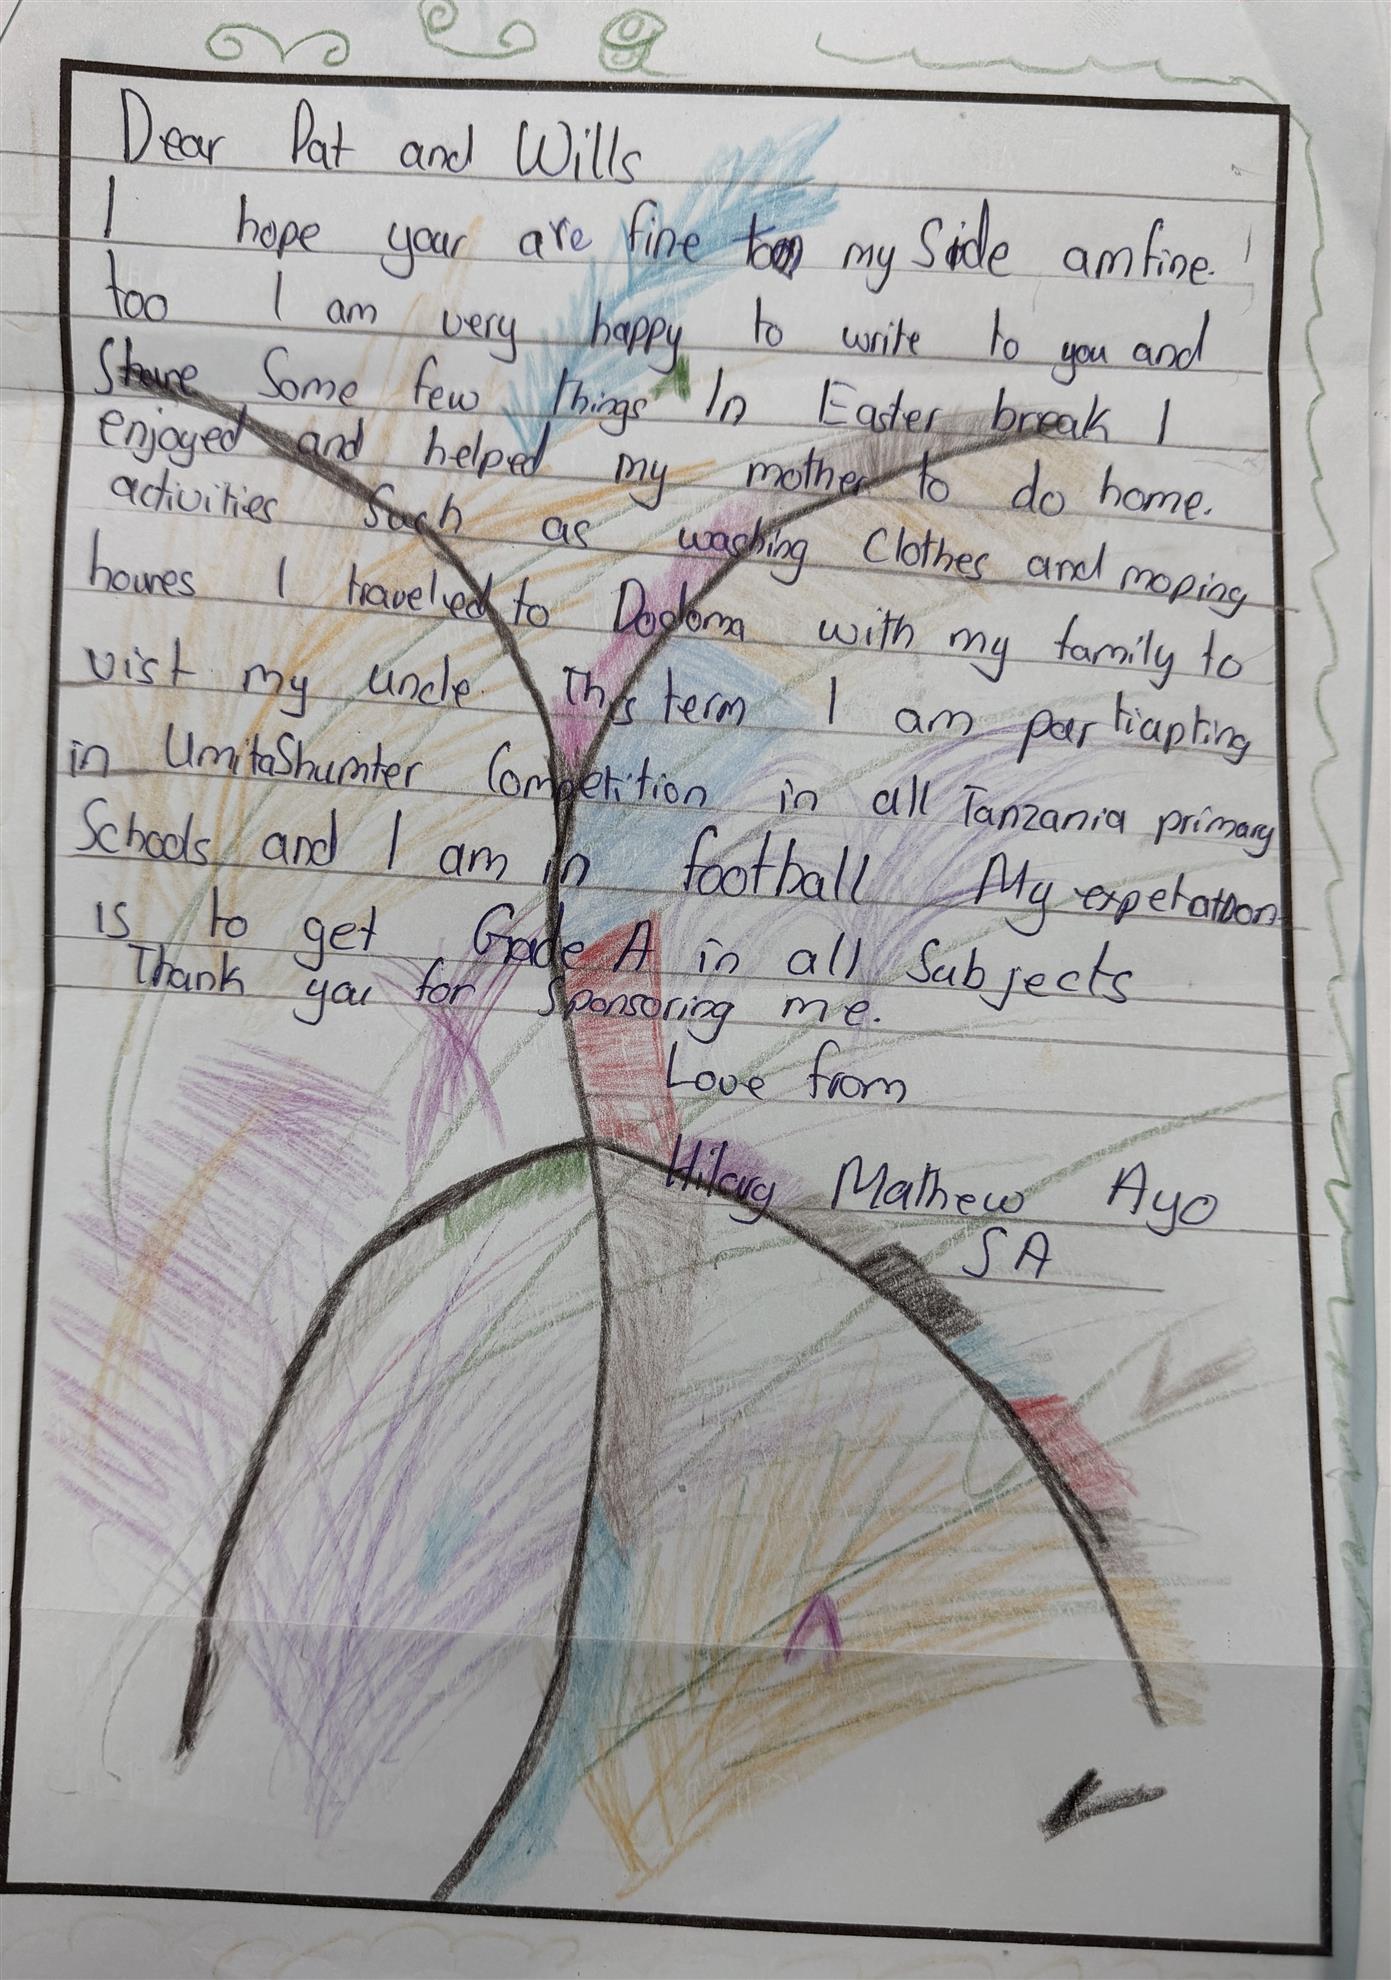 Dear Pat and Wills
I hope your are fine too my Side am fine.
too I am very happy to write to you and
Share Some few things In Easter break I
enjoyed and helped my mother to do home.
activities Such as washing Clothes and moping
houres I traveled to Dodoma with my family to
vist my uncle. This term I am partiapting
in UmitaShumter Competition in all Tanzania primary
Schools and I am in football My expetation
is to get Grade A in all Subjects
Thank you for Sponsoring me.
Love from
Hilary Mathew Ayo
5A